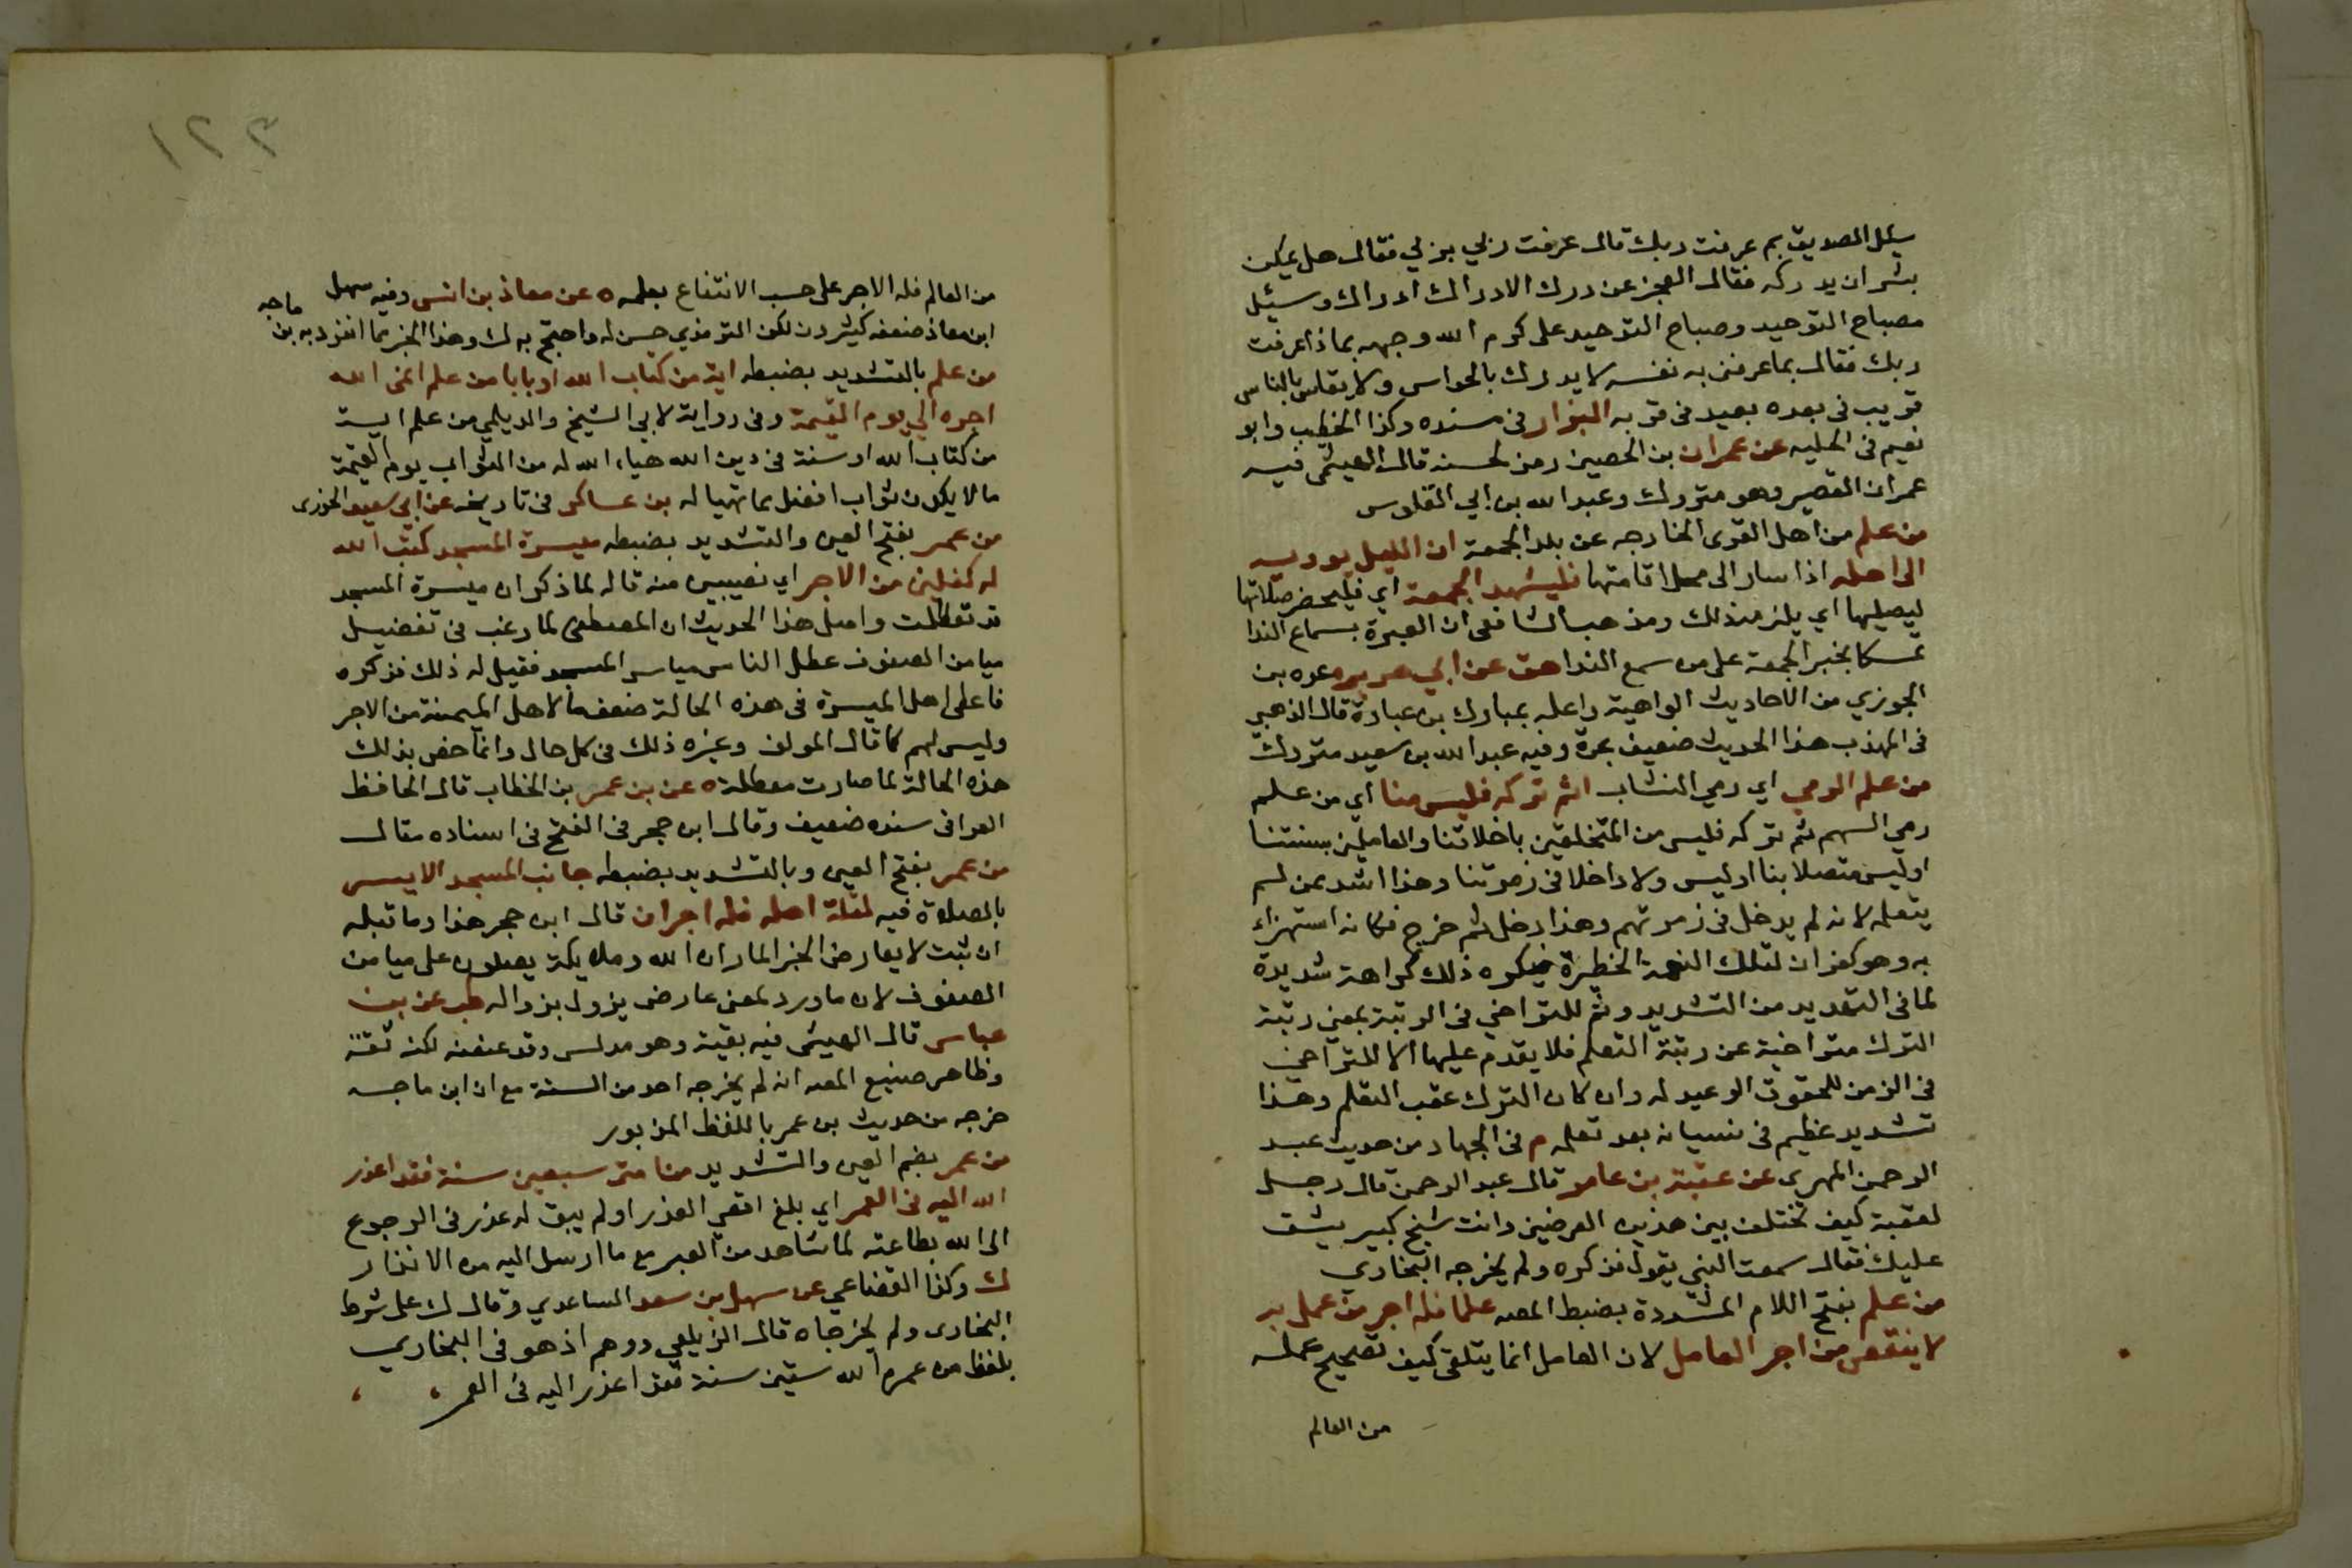 سئل الصديق بم عرفت ربك قال عرفت ربي بربي فقال هل يمكن
بشر ان يدركه فقال العجز عن درك الادراك ادراك وسئل
مصباح التوحيد وصباح التوحيد على كرم الله وجهه بماذا عرفت
ربك فقال بما عرفنى به نفسه لا يدرك بالحواس ولا يقاس بالناس
قريب فى بعده بعيد فى قربه البزار فى مسنده وكذا الخطيب وابو
نعيم فى الحليه عن عمران بن الحصين رمز لحسنه قال الهيثمى فيه
عمران القصير وهو متروك وعبد الله بن ابي القلوس
من علم من اهل القرى الخارجه عن بلد الجمعة ان الليل يوويه
الى اهله اذا سار الى محل اقامتها فليشهد الجمعة اي فليحضر صلاتها
ليصليها اي يلزمه ذلك ومذهب الشافعى ان العبرة بسماع الندا
تمسكا بخبر الجمعة على من سمع الندا هق عن ابي هريره عده بن
الجوزي من الاحاديث الواهية واعله بمبارك بن عبادة قال الذهبي
فى المهذب هذا الحديث ضعيف بمرة وفيه عبد الله بن سعيد متروك
من علم الرمي اي رمي النشاب اثم تركه فليس منا اي من علم
رمي السهم ثم تركه فليس من المتخلقين باخلاقنا والعاملين بسنتنا
اوليس متصلا بنا او ليس ولا داخلا فى زمرتنا وهذا اشد ممن لم
يتعلمه لانه لم يدخل فى زمرتهم وهذا دخل ثم خرج فكانه استهزاء
به وهو كفران لتلك النعمة الخطيرة فيكره ذلك كراهة شديدة
لما فى التهديد من التشديد وثم للتراخي فى الرتبة بمعني رتبة
الترك متراخية عن رتبة التعلم فلا يقدم عليها الا للتراخي
فى الزمن للحقوق الوعيد له وان كان الترك عقب التعلم وهذا
تشديد عظيم فى نسيانه بعد تعلمه م فى الجهاد من حديث عبد
الرحمن المهري عن عقبة بن عامر قال عبد الرحمن قال رجل
لعقبة كيف تختلف بين هذين الغرضين وانت شيخ كبير يشق
عليك فقال سمعت النبي يقول فذكره ولم يخرجه البخاري
من علم بفتح اللام المشددة بضبط المصه علما فله اجر من عمل به
لا ينقص من اجر العامل لان العامل انما يتلقى كيف تصحيح عمله
من العالم
١٢٣
من العالم فله الاجر على حسب الانتفاع بعلمه ه عن معاذ بن انس وفيه سهل
ابن معاذ ضعفه كثيرون لكن الترمذي حسن له واحتج به ك وهذا الخبر مما انفرد به بن ماجه
من علم بالتشديد بضبطه اية من كتاب الله او بابا من علم انمى الله
اجره الي يوم القيمة وفى رواية لابي الشيخ والديلمي من علم اية
من كتاب الله او سنة فى دين الله هياء الله له من الثواب يوم القيمة
ما لا يكون ثواب افضل مما تهيا له بن عساكر فى تاريخه عن ابي سعيد الخدرى
من عمر بفتح العين والتشديد بضبطه ميسرة المسجد كتب الله
له كفلين من الاجر اي نصيبين منه قاله لما ذكر ان ميسرة المسجد
قد تعطلت واصل هذا الحديث ان المصطفى لما رغب فى تفضيل
ميامن الصفوف عطل الناس مياسر المسجد فقيل له ذلك فذكره
فاعطى اهل الميسرة فى هذه الحالة ضعف ما لاهل الميمنة من الاجر
وليس لهم كما قال المولف وغيره ذلك فى كل حال وانما خص بذلك
هذه الحالة لما صارت معطلة ه عن بن عمر بن الخطاب قال الحافظ
العراقى سنده ضعيف وقال ابن حجر فى الفتح فى اسناده مقال
من عمر بفتح العين وبالتشديد بضبطه جانب المسجد الايسر
بالصلاة فيه لقلة اهله فله اجران قال ابن حجر هذا وما قبله
ان ثبت لا يعارض الخبر المار ان الله وملايكته يصلون على ميامن
الصفوف لان ما ورد لمعنى عارض يزول بزواله طب عن بن
عباس قال الهيثمى فيه بقية وهو مدلس وقد عنعنه لكنه ثقة
وظاهر صنيع المصه انه لم يخرجه احد من الستة مع ان ابن ماجه
خرجه من حديث بن عمر باللفظ المزبور
من عمر بضم العين والتشديد من امتى سبعين سنة فقد اعذر
الله اليه فى العمر اي بلغ اقصي العذر او لم يبق له عذر فى الرجوع
الى الله بطاعته لما شاهد من العبر مع ما ارسل اليه من الانذار
ك وكذا القضاعي عن سهل بن سعد الساعدي وقال ك على شرط
البخارى ولم يخرجاه قال الزيلعي ووهم اذ هو فى البخاري
بلفظ من عمره الله ستين سنة فقد اعذر اليه فى العمر